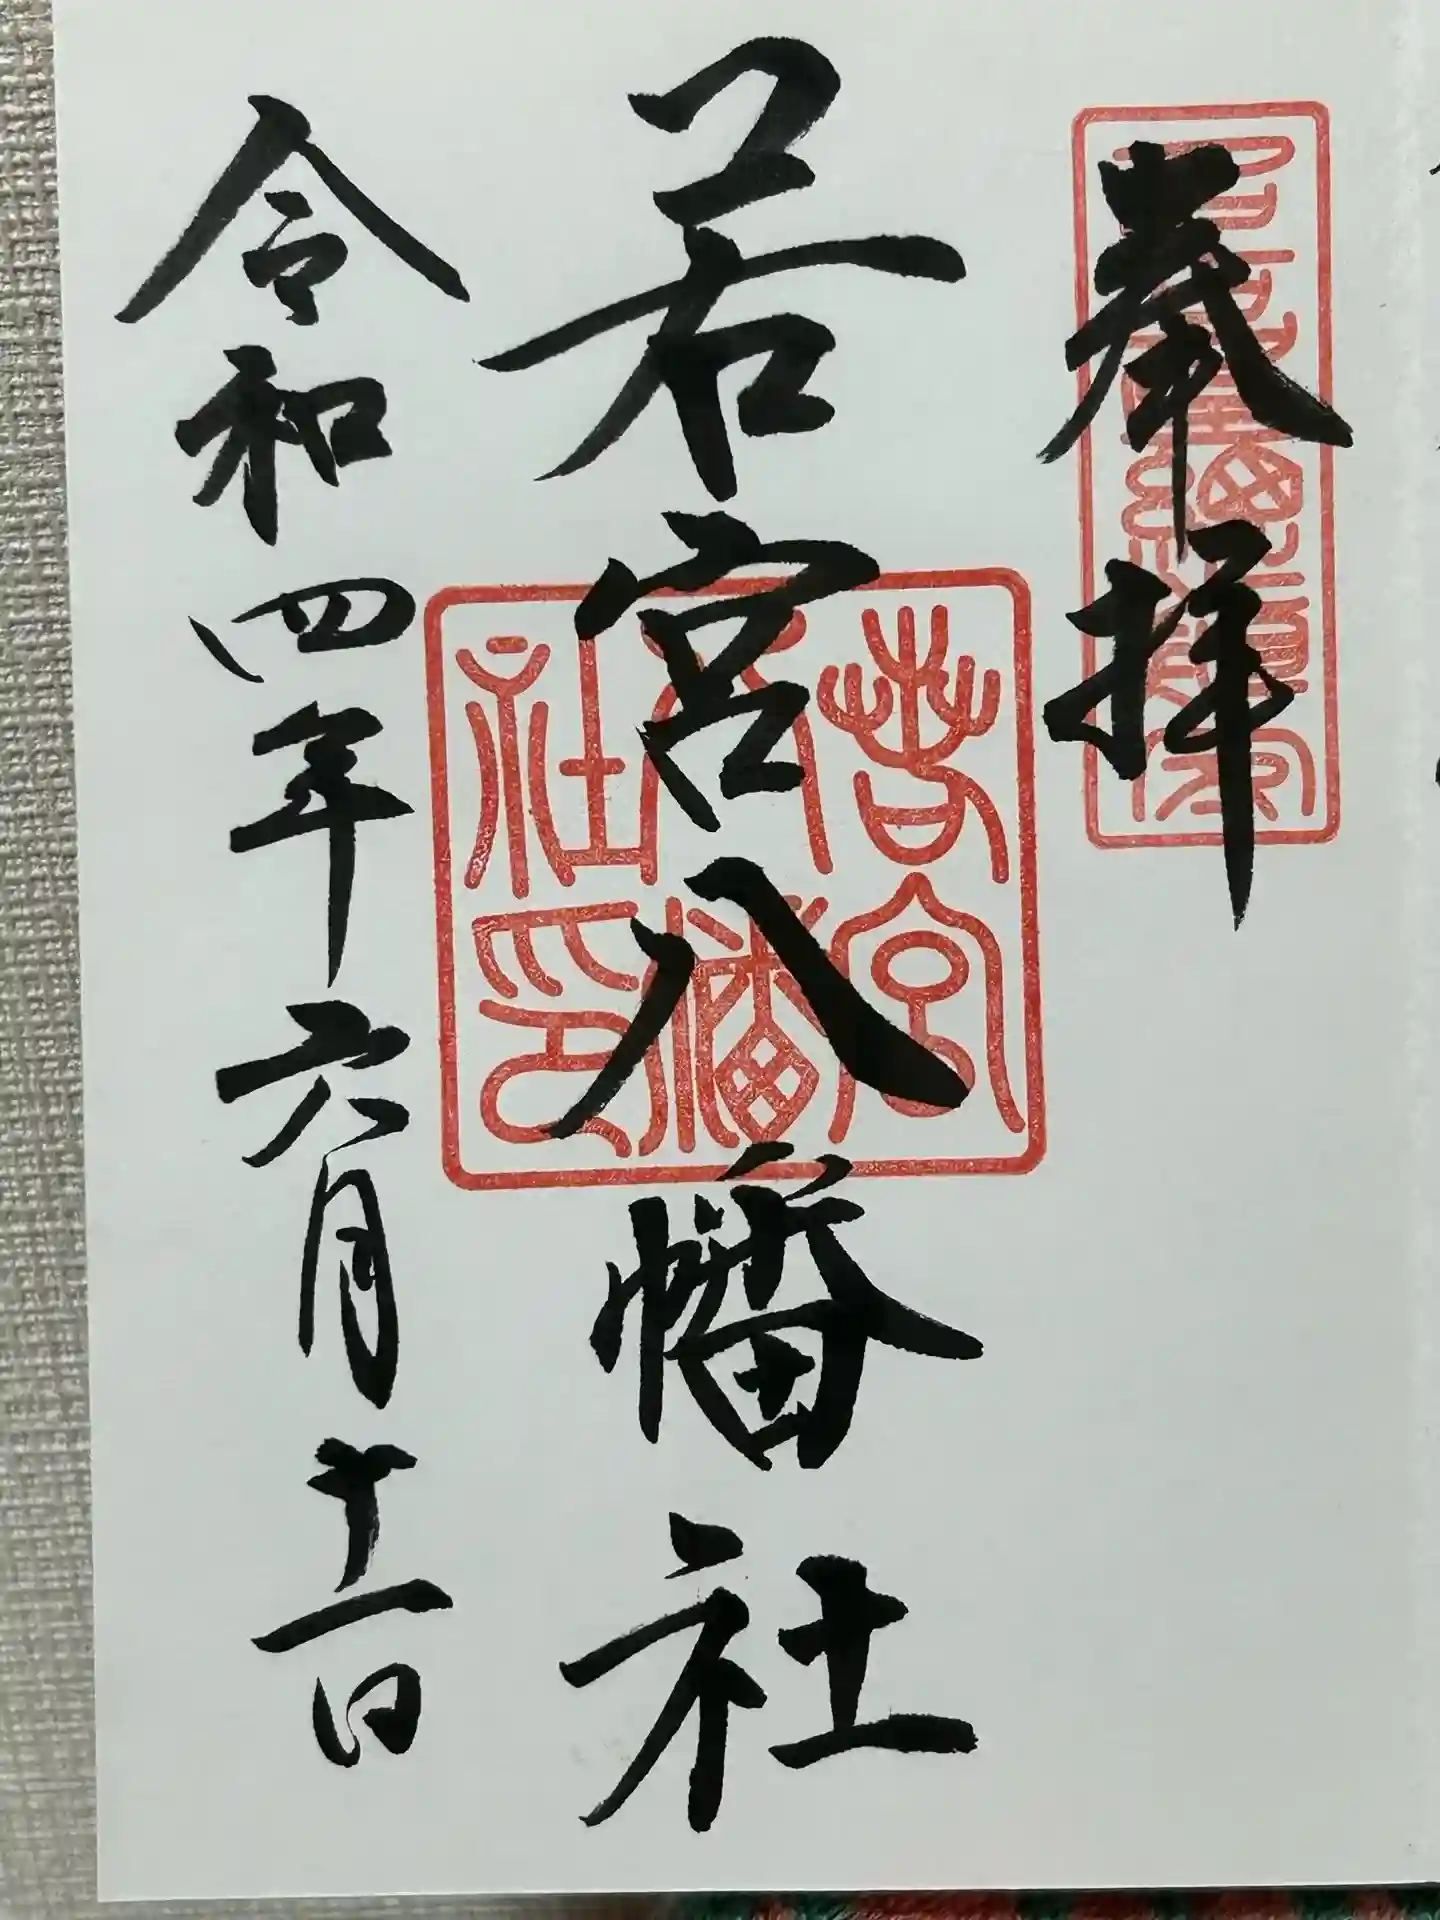 奉拝
若宮八幡社
若宮八幡社印
令和四年六月十一日